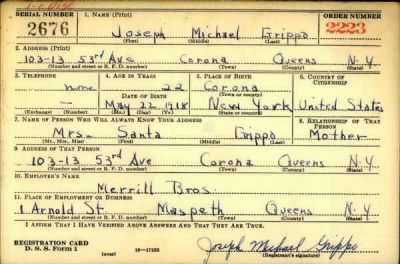 SERIAL NUMBER 1. NAME (Print) ORDER NUMBER
2676 Joseph Michael Grippo 2223
(First) (Middle) (Last)
2. ADDRESS (Print)
103-13 53rd Ave Corona Queens N.Y
(Number and street or R. F. D. number) (Town) (County) (State)
3. TELEPHONE 4. AGE IN YEARS 5. PLACE OF BIRTH 6. COUNTRY OF CITIZENSHIP
none 22 Corona
DATE OF BIRTH (Town or county)
May 22 1918 New York United States
(Exchange) (Number) (Mo.) (Day) (Yr.) (State or country)
7. NAME OF PERSON WHO WILL ALWAYS KNOW YOUR ADDRESS 8. RELATIONSHIP OF THAT PERSON
Mrs. Santa Grippo Mother
(Mr., Mrs., Miss) (First) (Middle) (Last)
9. ADDRESS OF THAT PERSON
103-13 53rd Ave Corona Queens N.Y
(Number and street or R. F. D. number) (Town) (County) (State)
10. EMPLOYER'S NAME
Merrill Bros.
11. PLACE OF EMPLOYMENT OR BUSINESS
1 Arnold St Maspeth Queens N.Y
(Number and street or R. F. D. number) (Town) (County) (State)
I AFFIRM THAT I HAVE VERIFIED ABOVE ANSWERS AND THAT THEY ARE TRUE.
REGISTRATION CARD
D. S. S. Form 1 Joseph Michael Grippo
(Registrant's signature)